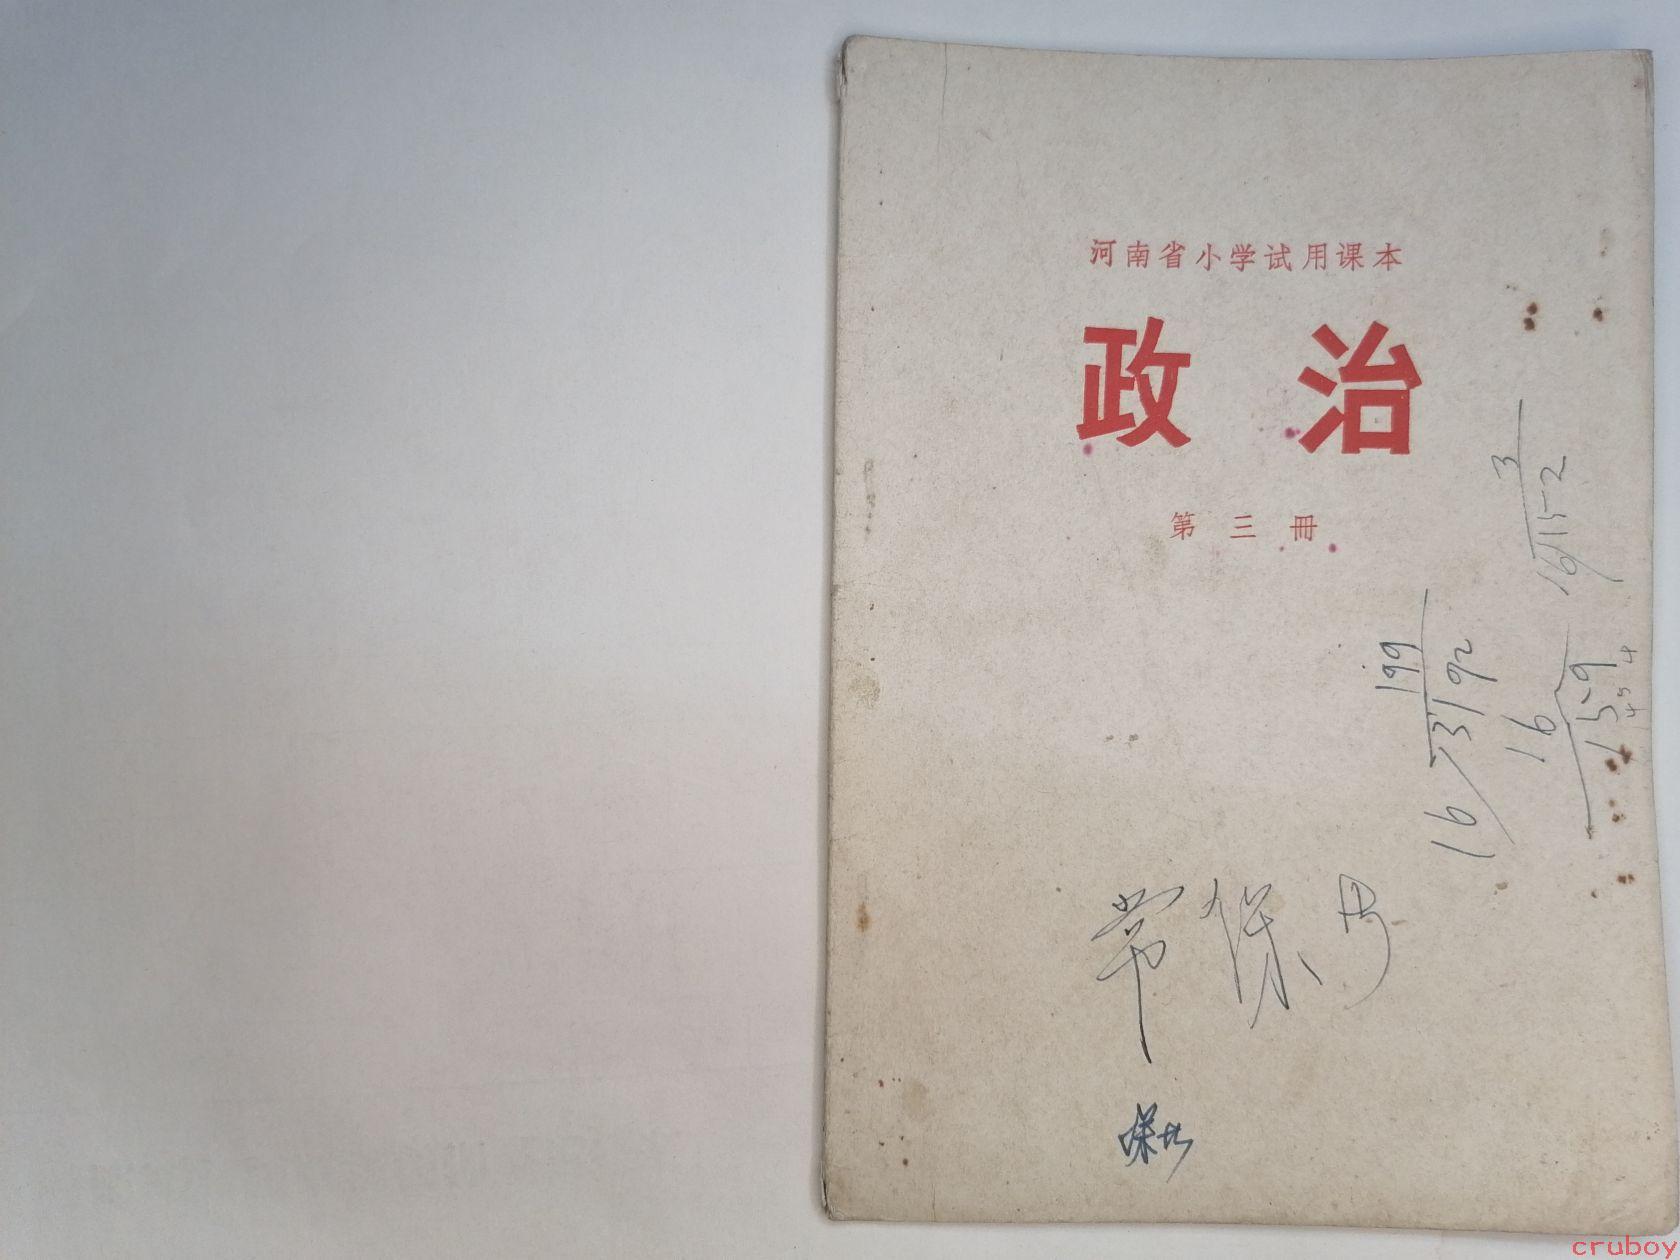 河南省小学试用课本
政治
第三冊
3
16/152
199
16/3192
16
159
常保
cruboy